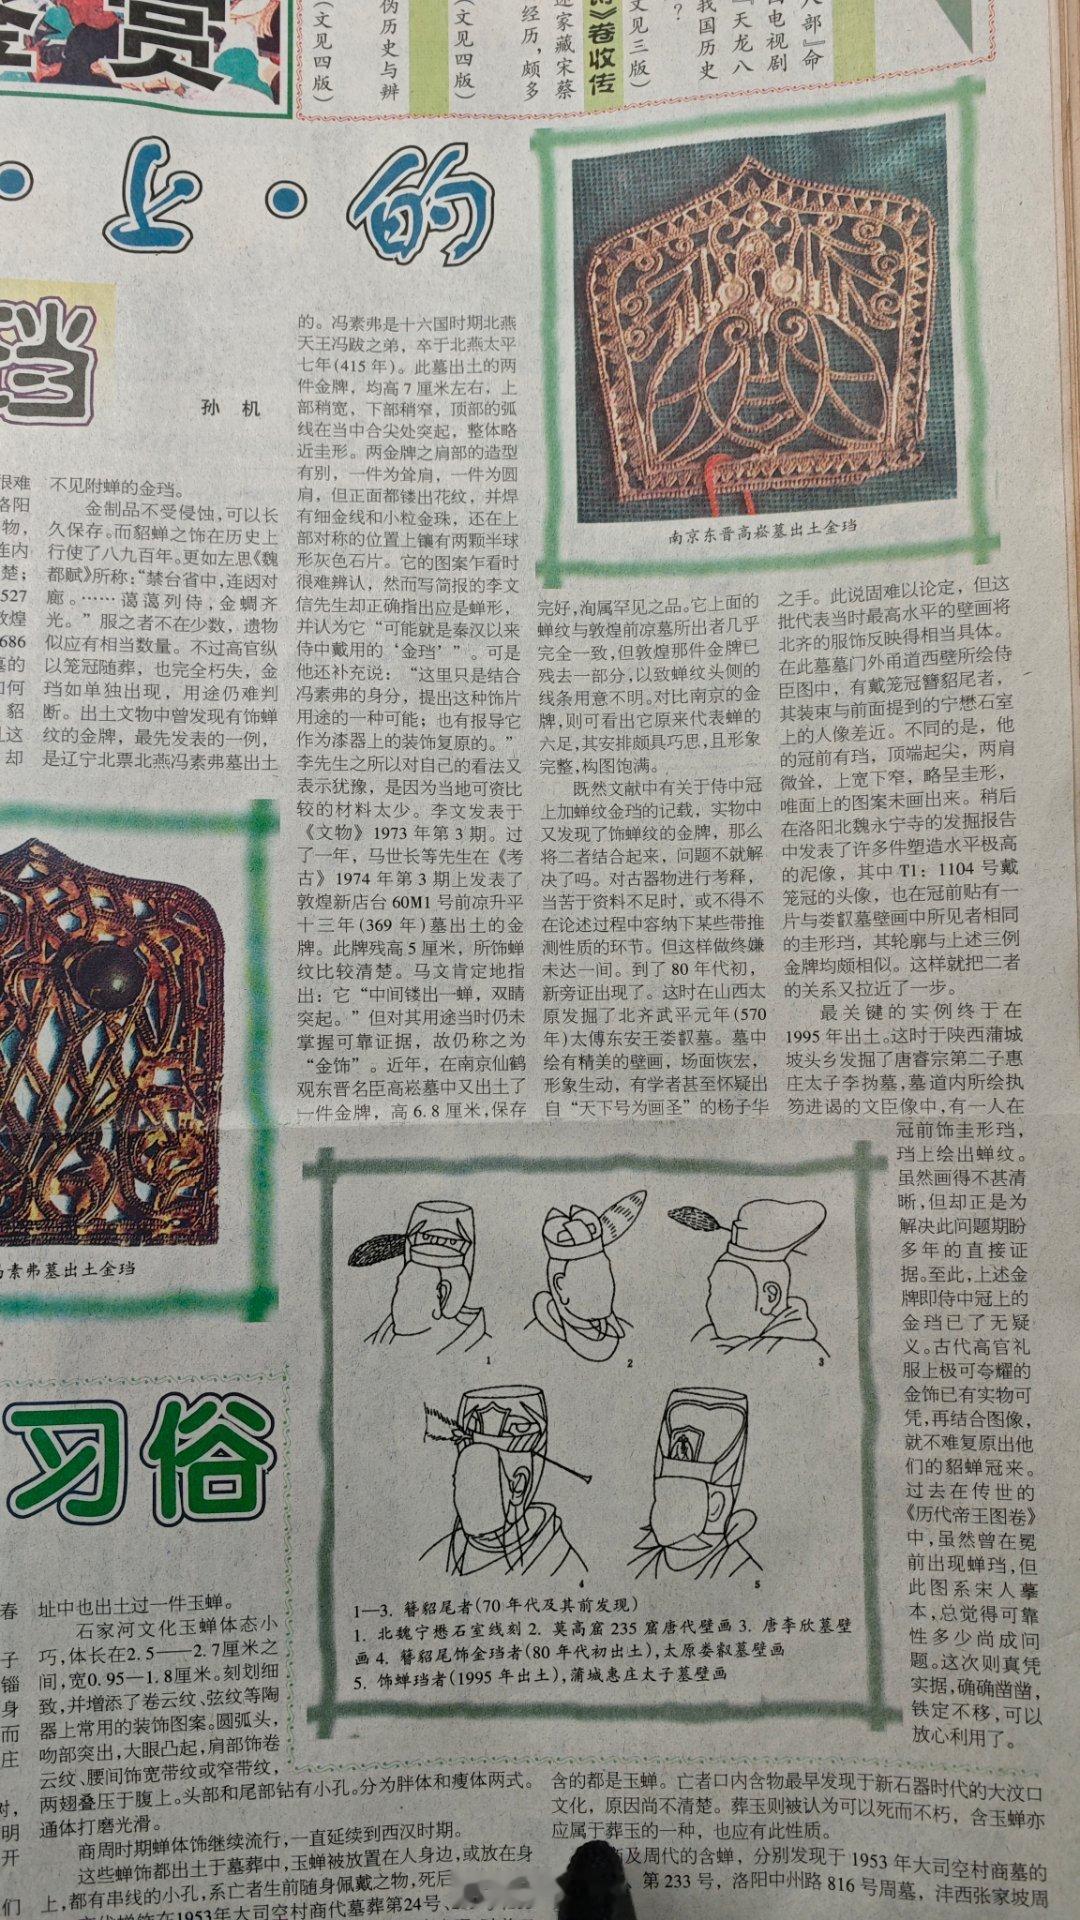 赏
(文见四版)
伪历史与辨
(文见四版)
经历，颇多
述家藏宋蔡
》卷收传
文见三版)
？
我国历史
『天龙八
电视剧
八部』命
·上·的
珰
孙 机
很难
洛阳
物，
连内
楚；
527
敦煌
686
墓的
如何
貂
这
却
不见附蝉的金珰。
金制品不受侵蚀，可以长
久保存。而貂蝉之饰在历史上
行使了八九百年。更如左思《魏
都赋》所称：“禁台省中，连闼对
廊。……蔼蔼列侍，金蜩齐
光。”服之者不在少数，遗物
似应有相当数量。不过高官纵
以笼冠随葬，也完全朽失，金
珰如单独出现，用途仍难判
断。出土文物中曾发现有饰蝉
纹的金牌，最先发表的一例，
是辽宁北票北燕冯素弗墓出土
的。冯素弗是十六国时期北燕
天王冯跋之弟，卒于北燕太平
七年(415年)。此墓出土的两
件金牌，均高7厘米左右，上
部稍宽，下部稍窄，顶部的弧
线在当中合尖处突起，整体略
近圭形。两金牌之肩部的造型
有别，一件为耸肩，一件为圆
肩，但正面都镂出花纹，并焊
有细金线和小粒金珠，还在上
部对称的位置上镶有两颗半球
形灰色石片。它的图案乍看时
很难辨认，然而写简报的李文
信先生却正确指出应是蝉形，
并认为它“可能就是秦汉以来
侍中戴用的‘金珰’”。可是
他还补充说：“这里只是结合
冯素弗的身分，提出这种饰片
用途的一种可能；也有报导它
作为漆器上的装饰复原的。”
李先生之所以对自己的看法又
表示犹豫，是因为当地可资比
较的材料太少。李文发表于
《文物》1973年第3期。过
了一年，马世长等先生在《考
古》1974年第3期上发表了
敦煌新店台60M1号前凉升平
十三年(369年)墓出土的金
牌。此牌残高5厘米，所饰蝉
纹比较清楚。马文肯定地指
出：它“中间镂出一蝉，双睛
突起。”但对其用途当时仍未
掌握可靠证据，故仍称之为
“金饰”。近年，在南京仙鹤
观东晋名臣高崧墓中又出土了
一件金牌，高6.8厘米，保存
南京东晋高崧墓出土金珰
完好，洵属罕见之品。它上面的
蝉纹与敦煌前凉墓所出者几乎
完全一致，但敦煌那件金牌已
残去一部分，以致蝉纹头侧的
线条用意不明。对比南京的金
牌，则可看出它原来代表蝉的
六足，其安排颇具巧思，且形象
完整，构图饱满。
既然文献中有关于侍中冠
上加蝉纹金珰的记载，实物中
又发现了饰蝉纹的金牌，那么
将二者结合起来，问题不就解
决了吗。对古器物进行考释，
当苦于资料不足时，或不得不
在论述过程中容纳下某些带推
测性质的环节。但这样做终嫌
未达一间。到了80年代初，
新旁证出现了。这时在山西太
原发掘了北齐武平元年(570
年)太傅东安王娄叡墓。墓中
绘有精美的壁画，场面恢宏，
形象生动，有学者甚至怀疑出
自“天下号为画圣”的杨子华
之手。此说固难以论定，但这
批代表当时最高水平的壁画将
北齐的服饰反映得相当具体。
在此墓墓门外甬道西壁所绘侍
臣图中，有戴笼冠簪貂尾者，
其装束与前面提到的宁懋石室
上的人像差近。不同的是，他
的冠前有珰，顶端起尖，两肩
微耸，上宽下窄，略呈圭形，
唯面上的图案未画出来。稍后
在洛阳北魏永宁寺的发掘报告
中发表了许多件塑造水平极高
的泥像，其中T1：1104号戴
笼冠的头像，也在冠前贴有一
片与娄叡墓壁画中所见者相同
的圭形珰，其轮廓与上述三例
金牌均颇相似。这样就把二者
的关系又拉近了一步。
最关键的实例终于在
1995年出土。这时于陕西蒲城
坡头乡发掘了唐睿宗第二子惠
庄太子李㧑墓，墓道内所绘执
笏进谒的文臣像中，有一人在
冠前饰圭形珰，
珰上绘出蝉纹。
虽然画得不甚清
晰，但却正是为
解决此问题期盼
多年的直接证
据。至此，上述金
牌即侍中冠上的
金珰已了无疑
义。古代高官礼
服上极可夸耀的
金饰已有实物可
凭，再结合图像，
就不难复原出他
们的貂蝉冠来。
过去在传世的
《历代帝王图卷》
中，虽然曾在冕
前出现蝉珰，但
此图系宋人摹
本，总觉得可靠
性多少尚成问
题。这次则真凭
实据，确确凿凿，
铁定不移，可以
放心利用了。
冯素弗墓出土金珰
1
2
3
4
5
1—3. 簪貂尾者(70年代及其前发现)
1. 北魏宁懋石室线刻 2. 莫高窟235窟唐代壁画 3. 唐李欣墓壁
画 4. 簪貂尾饰金珰者(80年代初出土)，太原娄叡墓壁画
5. 饰蝉珰者(1995年出土)，蒲城惠庄太子墓壁画
习俗
春
子
锱
身
而
庄
对，
明
开
们
址中也出土过一件玉蝉。
石家河文化玉蝉体态小
巧，体长在2.5——2.7厘米之
间，宽0.95—1.8厘米。刻划细
致，并增添了卷云纹、弦纹等陶
器上常用的装饰图案。圆弧头，
吻部突出，大眼凸起，肩部饰卷
云纹、腰间饰宽带纹或窄带纹，
两翅叠压于腹上。头部和尾部钻有小孔。分为胖体和瘦体两式。
通体打磨光滑。
商周时期蝉体饰继续流行，一直延续到西汉时期。
这些蝉饰都出土于墓葬中，玉蝉被放置在人身边，或放在身
上，都有串线的小孔，系亡者生前随身佩戴之物，死后
商代蝉饰在1953年大司空村商代墓葬第24号、
含的都是玉蝉。亡者口内含物最早发现于新石器时代的大汶口
文化，原因尚不清楚。葬玉则被认为可以死而不朽，含玉蝉亦
应属于葬玉的一种，也应有此性质。
及周代的含蝉，分别发现于1953年大司空村商墓的
第233号，洛阳中州路816号周墓，沣西张家坡周